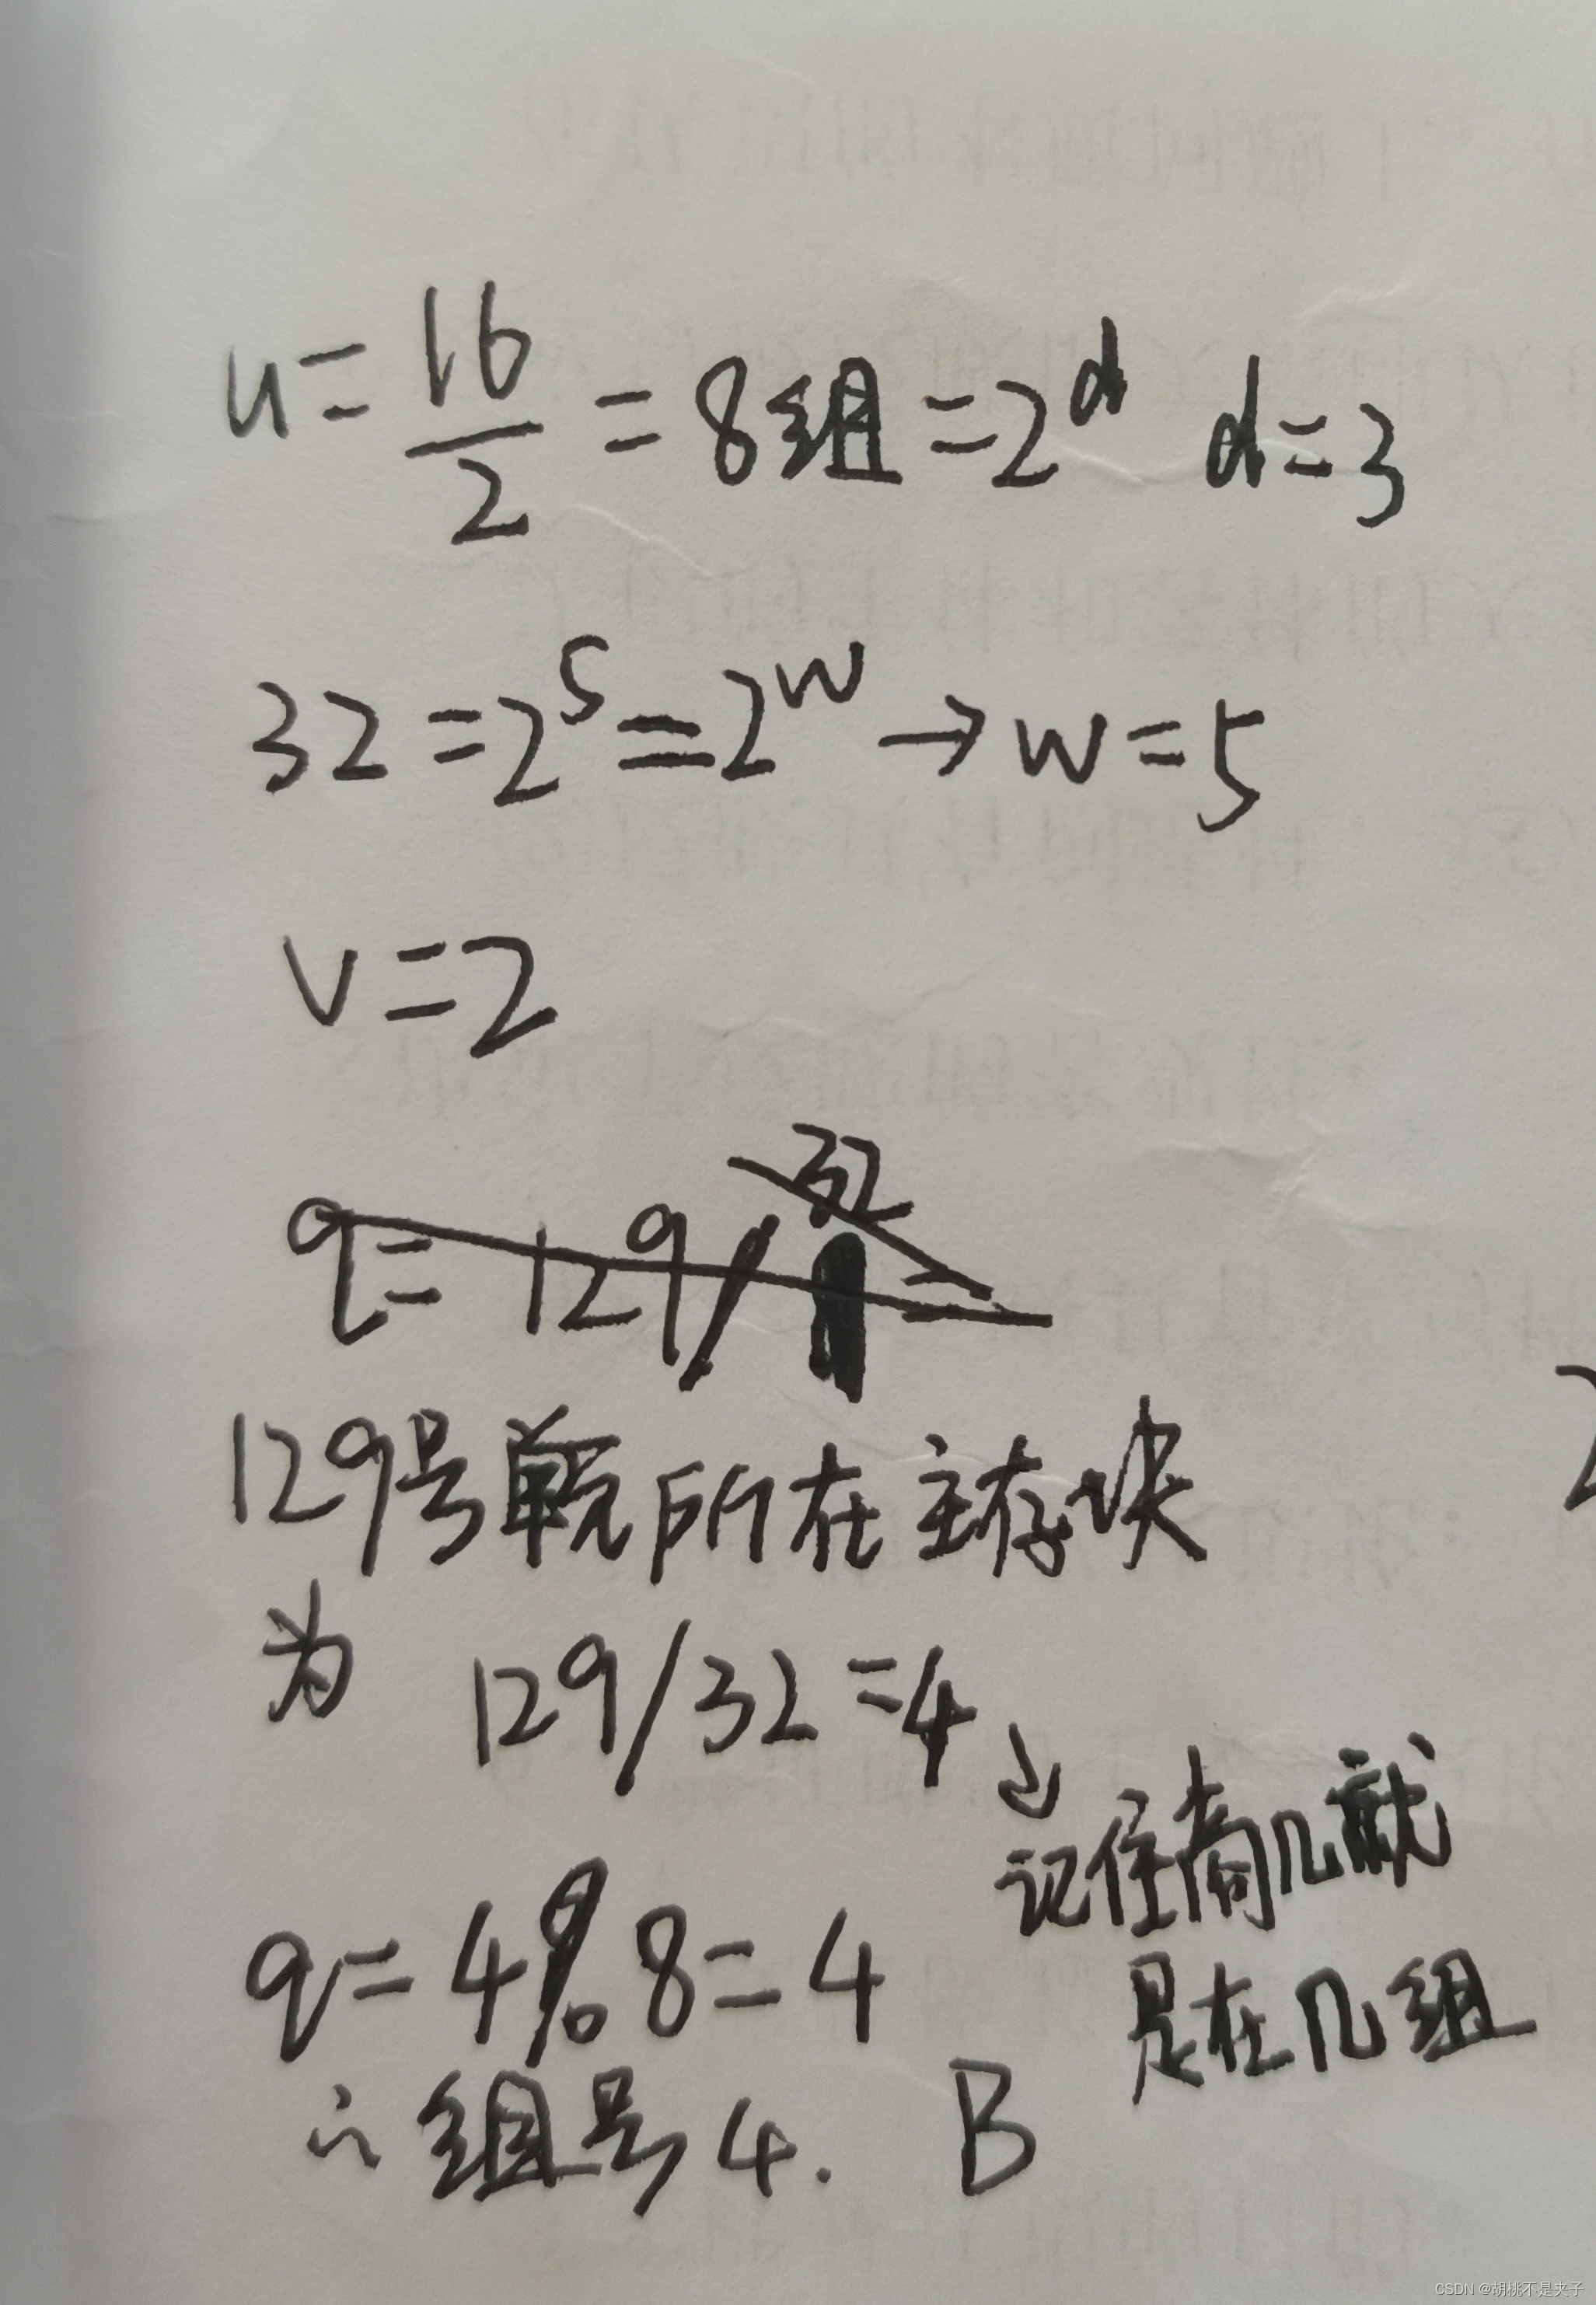 u=16/2=8组=2^d d=3
32=2^5=2^w→w=5
v=2
q=129/32=
129号单元所在主存块
为 129/32=4
↓
记住商几就
是在几组
q=4%8=4
∴组号4. B
CSDN @胡桃不是夹子